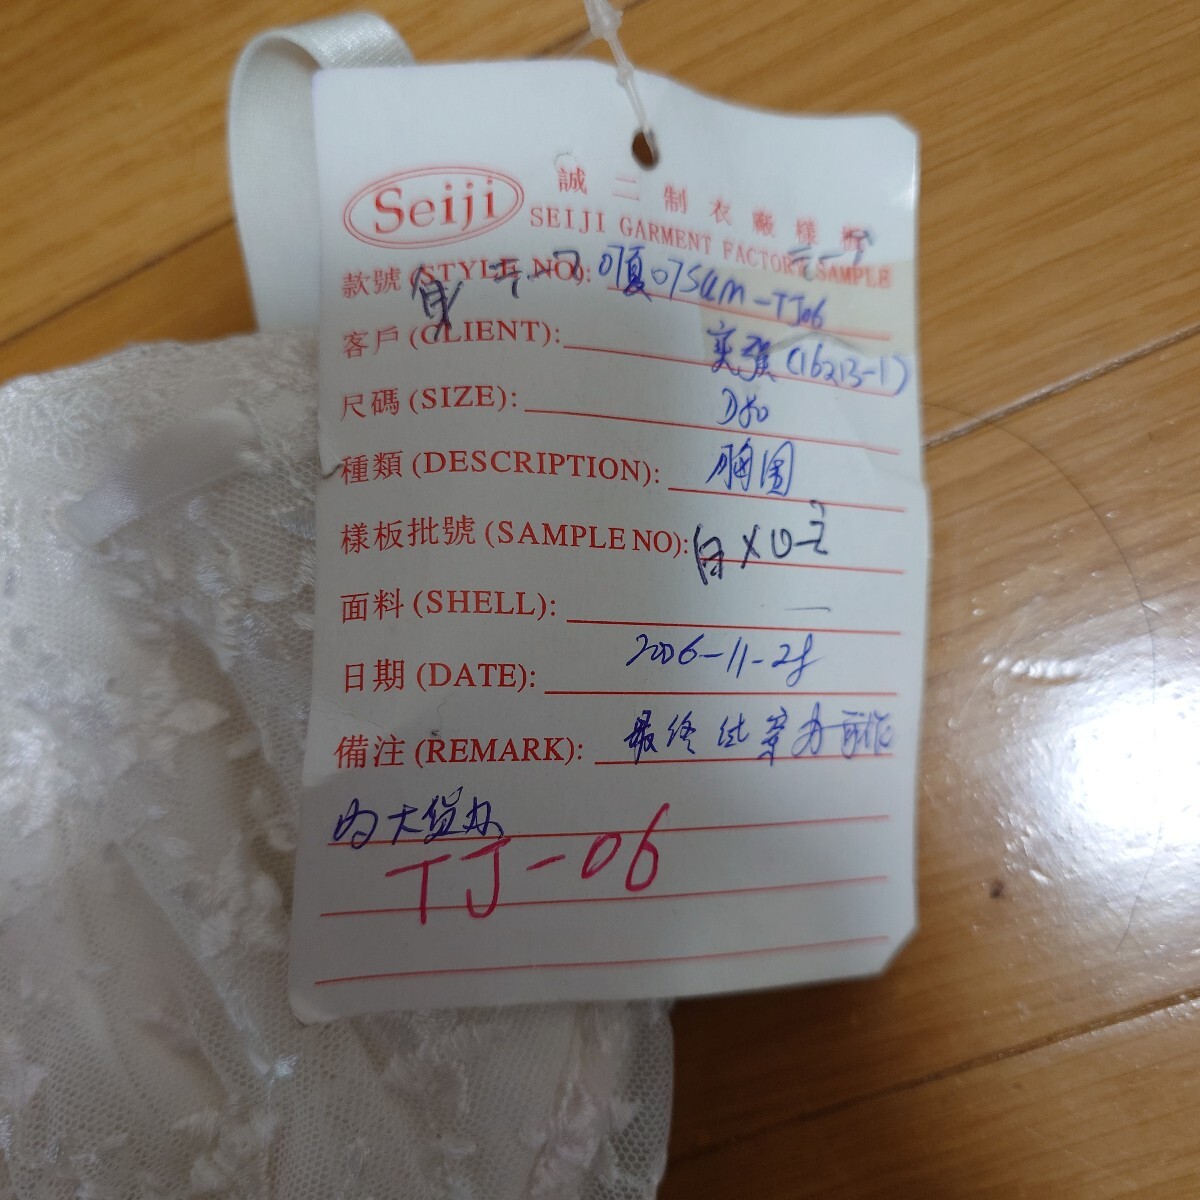 Seiji
誠二制衣廠樣板
SEIJI GARMENT FACTORY SAMPLE
款號 (STYLE NO): 07夏07SUM-TJ06
客戶 (CLIENT): (16213-1)
尺碼 (SIZE): D80
種類 (DESCRIPTION): 胸围
樣板批號 (SAMPLE NO): 白
面料 (SHELL): —
日期 (DATE): 2006-11-28
備注 (REMARK): 最终
为大货办
TJ-06